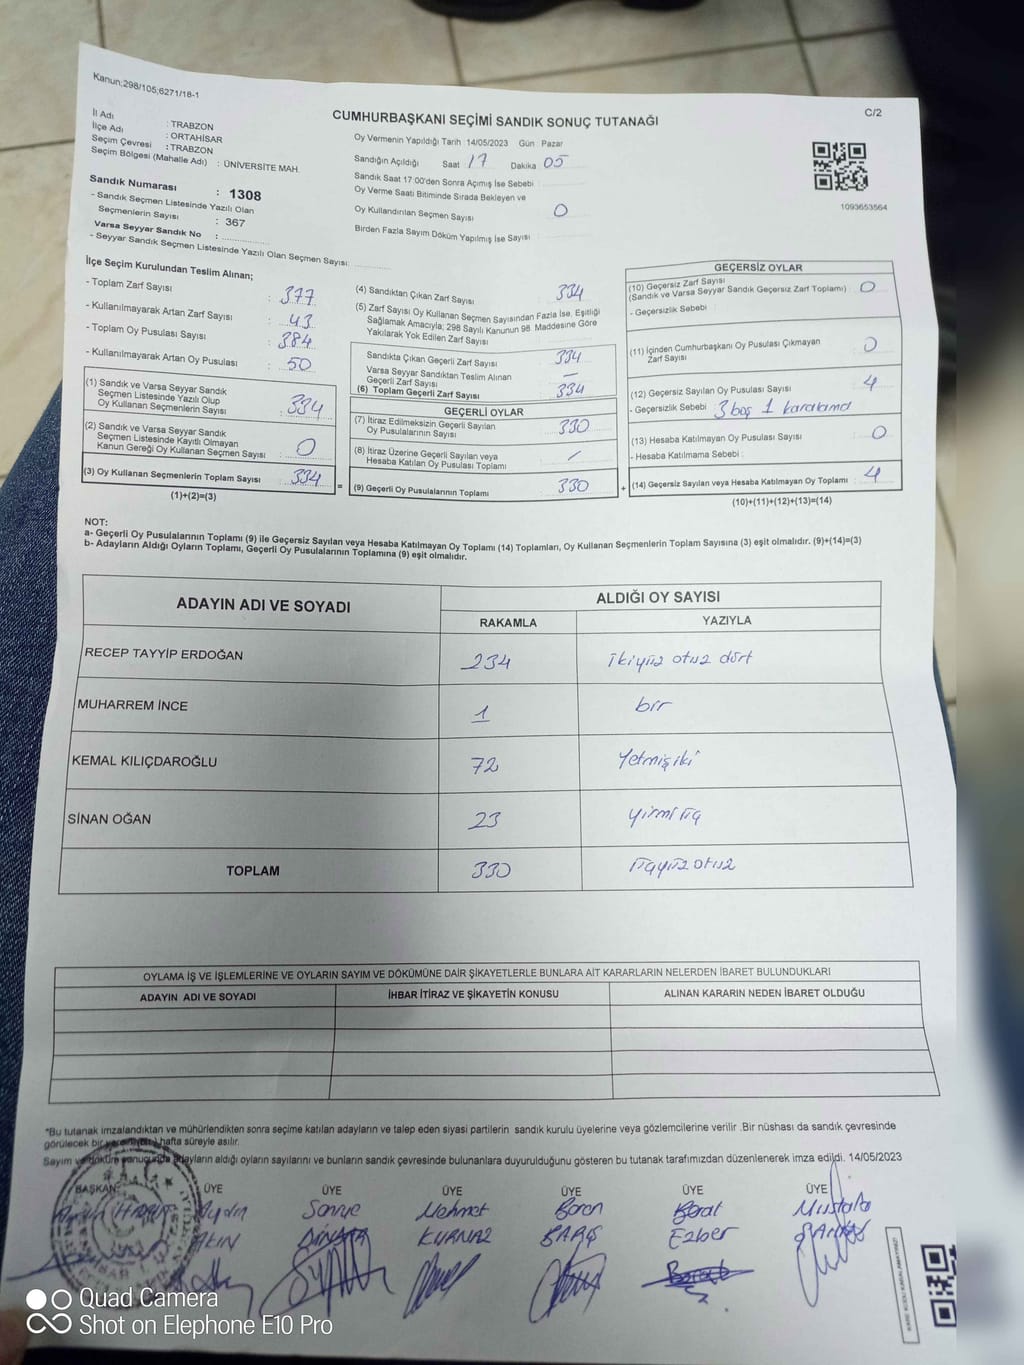 Kanun;298/105;6271/18-1
C/2
CUMHURBAŞKANI SEÇİMİ SANDIK SONUÇ TUTANAĞI
İl Adı : TRABZON
İlçe Adı : ORTAHİSAR
Seçim Çevresi : TRABZON
Seçim Bölgesi (Mahalle Adı) : ÜNİVERSİTE MAH.
Sandık Numarası : 1308
- Sandık Seçmen Listesinde Yazılı Olan
Seçmenlerin Sayısı : 367
Varsa Seyyar Sandık No :
- Seyyar Sandık Seçmen Listesinde Yazılı Olan Seçmen Sayısı:
Oy Vermenin Yapıldığı Tarih :14/05/2023 Gün : Pazar
Sandığın Açıldığı Saat 17 Dakika 05
Sandık Saat 17:00'den Sonra Açımış İse Sebebi :
Oy Verme Saati Bitiminde Sırada Bekleyen ve
Oy Kullandırılan Seçmen Sayısı : 0
Birden Fazla Sayım Döküm Yapılmış İse Sayısı :
1093653564
İlçe Seçim Kurulundan Teslim Alınan;
- Toplam Zarf Sayısı : 377
- Kullanılmayarak Artan Zarf Sayısı : 43
- Toplam Oy Pusulası Sayısı : 384
- Kullanılmayarak Artan Oy Pusulası : 50
(1) Sandık ve Varsa Seyyar Sandık
Seçmen Listesinde Yazılı Olup
Oy Kullanan Seçmenlerin Sayısı : 334
(2) Sandık ve Varsa Seyyar Sandık
Seçmen Listesinde Kayıtlı Olmayan
Kanun Gereği Oy Kullanan Seçmen Sayısı : 0
(3) Oy Kullanan Seçmenlerin Toplam Sayısı : 334
(1)+(2)=(3)
(4) Sandıktan Çıkan Zarf Sayısı : 334
(5) Zarf Sayısı Oy Kullanan Seçmen Sayısından Fazla İse, Eşitliği
Sağlamak Amacıyla; 298 Sayılı Kanunun 98. Maddesine Göre
Yakılarak Yok Edilen Zarf Sayısı :
Sandıkta Çıkan Geçerli Zarf Sayısı : 334
Varsa Seyyar Sandıktan Teslim Alınan
Geçerli Zarf Sayısı : —
(6) Toplam Geçerli Zarf Sayısı : 334
GEÇERLİ OYLAR
(7) İtiraz Edilmeksizin Geçerli Sayılan
Oy Pusulalarının Sayısı : 330
(8) İtiraz Üzerine Geçerli Sayılan veya
Hesaba Katılan Oy Pusulası Toplamı : /
= (9) Geçerli Oy Pusulalarının Toplamı : 330
GEÇERSİZ OYLAR
(10) Geçersiz Zarf Sayısı
(Sandık ve Varsa Seyyar Sandık Geçersiz Zarf Toplamı) : 0
- Geçersizlik Sebebi :
(11) İçinden Cumhurbaşkanı Oy Pusulası Çıkmayan
Zarf Sayısı : 0
(12) Geçersiz Sayılan Oy Pusulası Sayısı : 4
- Geçersizlik Sebebi : 3 boş 1 karalama
(13) Hesaba Katılmayan Oy Pusulası Sayısı : 0
- Hesaba Katılmama Sebebi :
+ (14) Geçersiz Sayılan veya Hesaba Katılmayan Oy Toplamı : 4
(10)+(11)+(12)+(13)=(14)
NOT:
a- Geçerli Oy Pusulalarının Toplamı (9) ile Geçersiz Sayılan veya Hesaba Katılmayan Oy Toplamı (14) Toplamları, Oy Kullanan Seçmenlerin Toplam Sayısına (3) eşit olmalıdır. (9)+(14)=(3)
b- Adayların Aldığı Oyların Toplamı, Geçerli Oy Pusulalarının Toplamına (9) eşit olmalıdır.
ADAYIN ADI VE SOYADI
ALDIĞI OY SAYISI
RAKAMLA YAZIYLA
RECEP TAYYİP ERDOĞAN 234 ikiyüz otuz dört
MUHARREM İNCE 1 bir
KEMAL KILIÇDAROĞLU 72 Yetmiş iki
SİNAN OĞAN 23 yirmi üç
TOPLAM 330 üçyüz otuz
OYLAMA İŞ VE İŞLEMLERİNE VE OYLARIN SAYIM VE DÖKÜMÜNE DAİR ŞİKAYETLERLE BUNLARA AİT KARARLARIN NELERDEN İBARET BULUNDUKLARI
ADAYIN ADI VE SOYADI İHBAR İTİRAZ VE ŞİKAYETİN KONUSU ALINAN KARARIN NEDEN İBARET OLDUĞU
*Bu tutanak imzalandıktan ve mühürlendikten sonra seçime katılan adayların ve talep eden siyasi partilerin sandık kurulu üyelerine veya gözlemcilerine verilir .Bir nüshası da sandık çevresinde
görülecek bir yere bir hafta süreyle asılır.
Sayım ve döküm sonucunda adayların aldığı oyların sayılarını ve bunların sandık çevresinde bulunanlara duyurulduğunu gösteren bu tutanak tarafımızdan düzenlenerek imza edildi. 14/05/2023
BAŞKAN ÜYE ÜYE ÜYE ÜYE ÜYE ÜYE
Aydın Mehmet Baran Berat Mustafa
AKIN KURNAZ BARIŞ Ezber
Quad Camera
Shot on Elephone E10 Pro